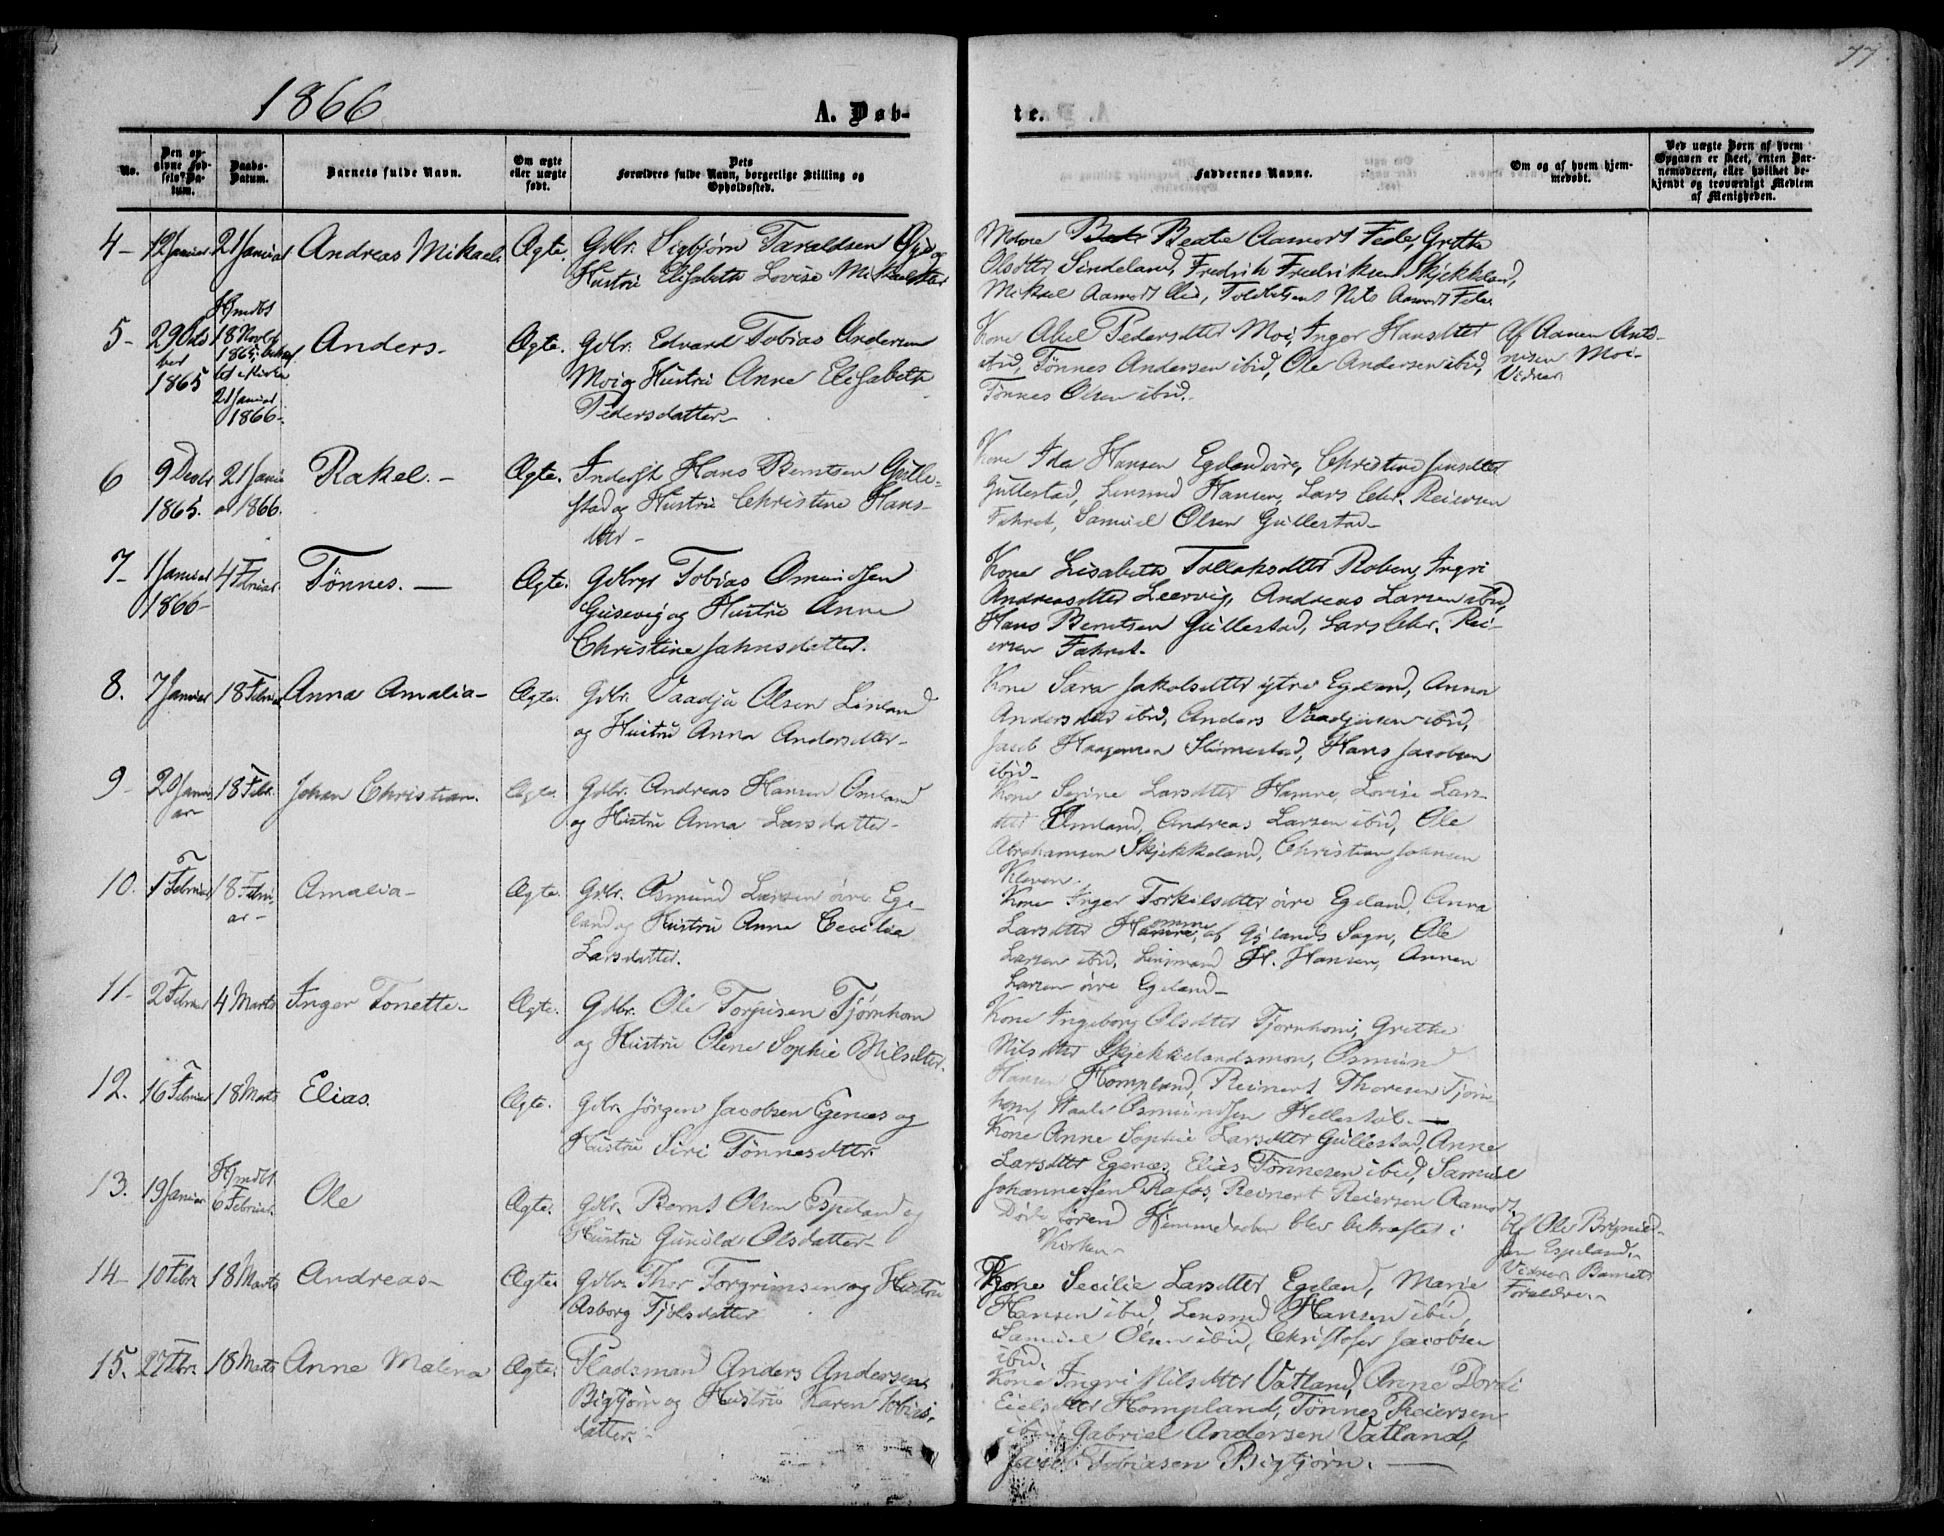 1866
77
A. Døb-
te.
No.
Den op-
givne Fød-
sels-Da-
tum.
Daabs-
Datum.
Barnets fulde Navn.
Om ægte
eller uægte
født.
Dets
Forældres fulde Navn, borgerlige Stilling og
Opholdssted.
Faddernes Navne.
Om og af hvem hjem-
medøbt.
Ved uægte Børn af hvem
Opgaven er skeet, enten Bar-
nemoderen, eller hvilket be-
kjendt og troværdigt Medlem
af Menigheden.
4- 12 Januar 21 Januar Andreas Mikael Ægte. Gdbr. Sigbjørn Taraldsen og
Hustru Elisabeth Lovise
Beate Aamodt Fede, Grethe
Olsdtter Sindeland, Fredrik Fredriksen Skjekkeland,
Mikael Aamodt Nils Aamodt Fede
5- 29 Octo
ber
1865
Hjmdbt
18 Novbr
1865,
21 Januar
1866.
Anders- Ægte. Gdbr. Edvard Tobias Andersen
Moi og Hustru Anne Elisabeth
Pedersdatter-
Kone Abel Pedersdtter Moi, Inger Hansdtter
ibid, Tønnes Andersen ibid, Ole Andersen ibid,
Tønnes Olsen ibid.
Af Aanen Ant-
nisen Moi-
Vidner
6 9 Decbr
1865.
21 Janu
ar 1866.
Rakel.- Ægte. Inderst Hans Berntsen Gulle-
stad og Hustru Christine Hans-
dtter-
Kone Ida Hansen Christine
Gullestad, Lensmd Hansen, Lars Chr. Reiersen
Fahret, Samuel Olsen Gullestad-
7- 1 Januar
1866-
4 Februar. Tønnes.- Ægte. Tobias Osmundsen
Gusevig og Hustru Anne
Christine Jahnsdatter.
Kone Lisabeth Tollaksdtter Roben, Ingri
Andreasdtter Leervig, Andreas Larsen ibid,
Hans Berntsen Gullestad, Lars Chr. Rei-
ersen Fahret.
8. 7 Januar 18 Februar Anna Amalia- Ægte. Gdbr. Vaadju Olsen
og Hustru Anna Andersdtter-
Kone Sara Jakobsdtter ytre Egeland, Anna
Andersdtter ibid, Anders Vaadjusen ibid,
Jacob Haagensen Slimestad, Hans Jacobsen
ibid-
9- 20 Janu-
ar-
18 Febr. Johan Christian. Ægte. Gdbr. Andreas Hansen Omland
og Hustru Anna Larsdatter-
Kone Serine Larsdtter Hamre, Lovise Lars-
dtter Omland, Andreas Larsen ibid, Ole
Abrahamsen Skjekkeland, Christian Johnsen
Kleven.
10. 1 Februar 18. Febru-
ar-
Amalia- Ægte. Gdbr. Osmund Larsen øvre Ege-
land og Hustru Anne Cecilia
Larsdatter.
Kone Inger Torkilsdtter øvre Egeland, Anna
Larsdtter af Gylands Sogn, Ole
Larsen ibid, Lensmand H. Hansen, Aanen
Larsen øvre Egeland-
11- 2 Februar 4 Marts Inger Tonette- Ægte. Gdbr. Ole Torjusen Tjørnhom
og Hustru Olene Sophie Nilsdtter.
Kone Ingeborg Olsdtter Tjørnhom, Grethe
Nilsdtter Skjekkelandsmon, Osmund
Hansen Hompland, Reinert Thoresen Tjørn-
hom, Osmundsen
12. 16 Februar 18 Marts Elias. Ægte. Gdbr. Jørgen Jacobsen Egenæs og
Hustru Siri Tønnesdtter.
Kone Anne Sophie Larsdtter Gullestad, Anne
Larsdtter Egenæs, Elias Tønnesen ibid, Samuel
Johannessen Rafos, Reinert Reiersen Aamodt.
13. 19 Januar Hjmdbt.
6 Februar.
Ole Ægte. Gdbr. Bernt Olsen Espeland og
Hustru Gunild Olsdatter-
Døde førend Hjemmedaaben blev bekræftet i
Kirken-
Af Ole Brynild-
sen Espeland.-
Vidner Barnets
Forældre.-
14- 10 Febr. 18 Marts Andreas- Ægte. Gdbr. Thor Torgrimsen og Hustru
Asborg Tjølsdatter
Kone Secilie Larsdtter Egeland, Marie
Hansen ibid, Lensmd Hansen ibid,
Samuel Olsen ibid, Christofer Jacobsen
ibid.
15. 27 Fbr. 18 Marts Anne Malena Ægte. Pladsmand Anders Andersen
Bigtjørn og Hustru Karen Tobias-
datter.-
Kone Ingri Nilsdtter Vatland, Anne Dordi
Hompland, Tønnes Reiersen
ibid, Gabriel Andersen Vatland,
Tobiasen Bigtjørn.-